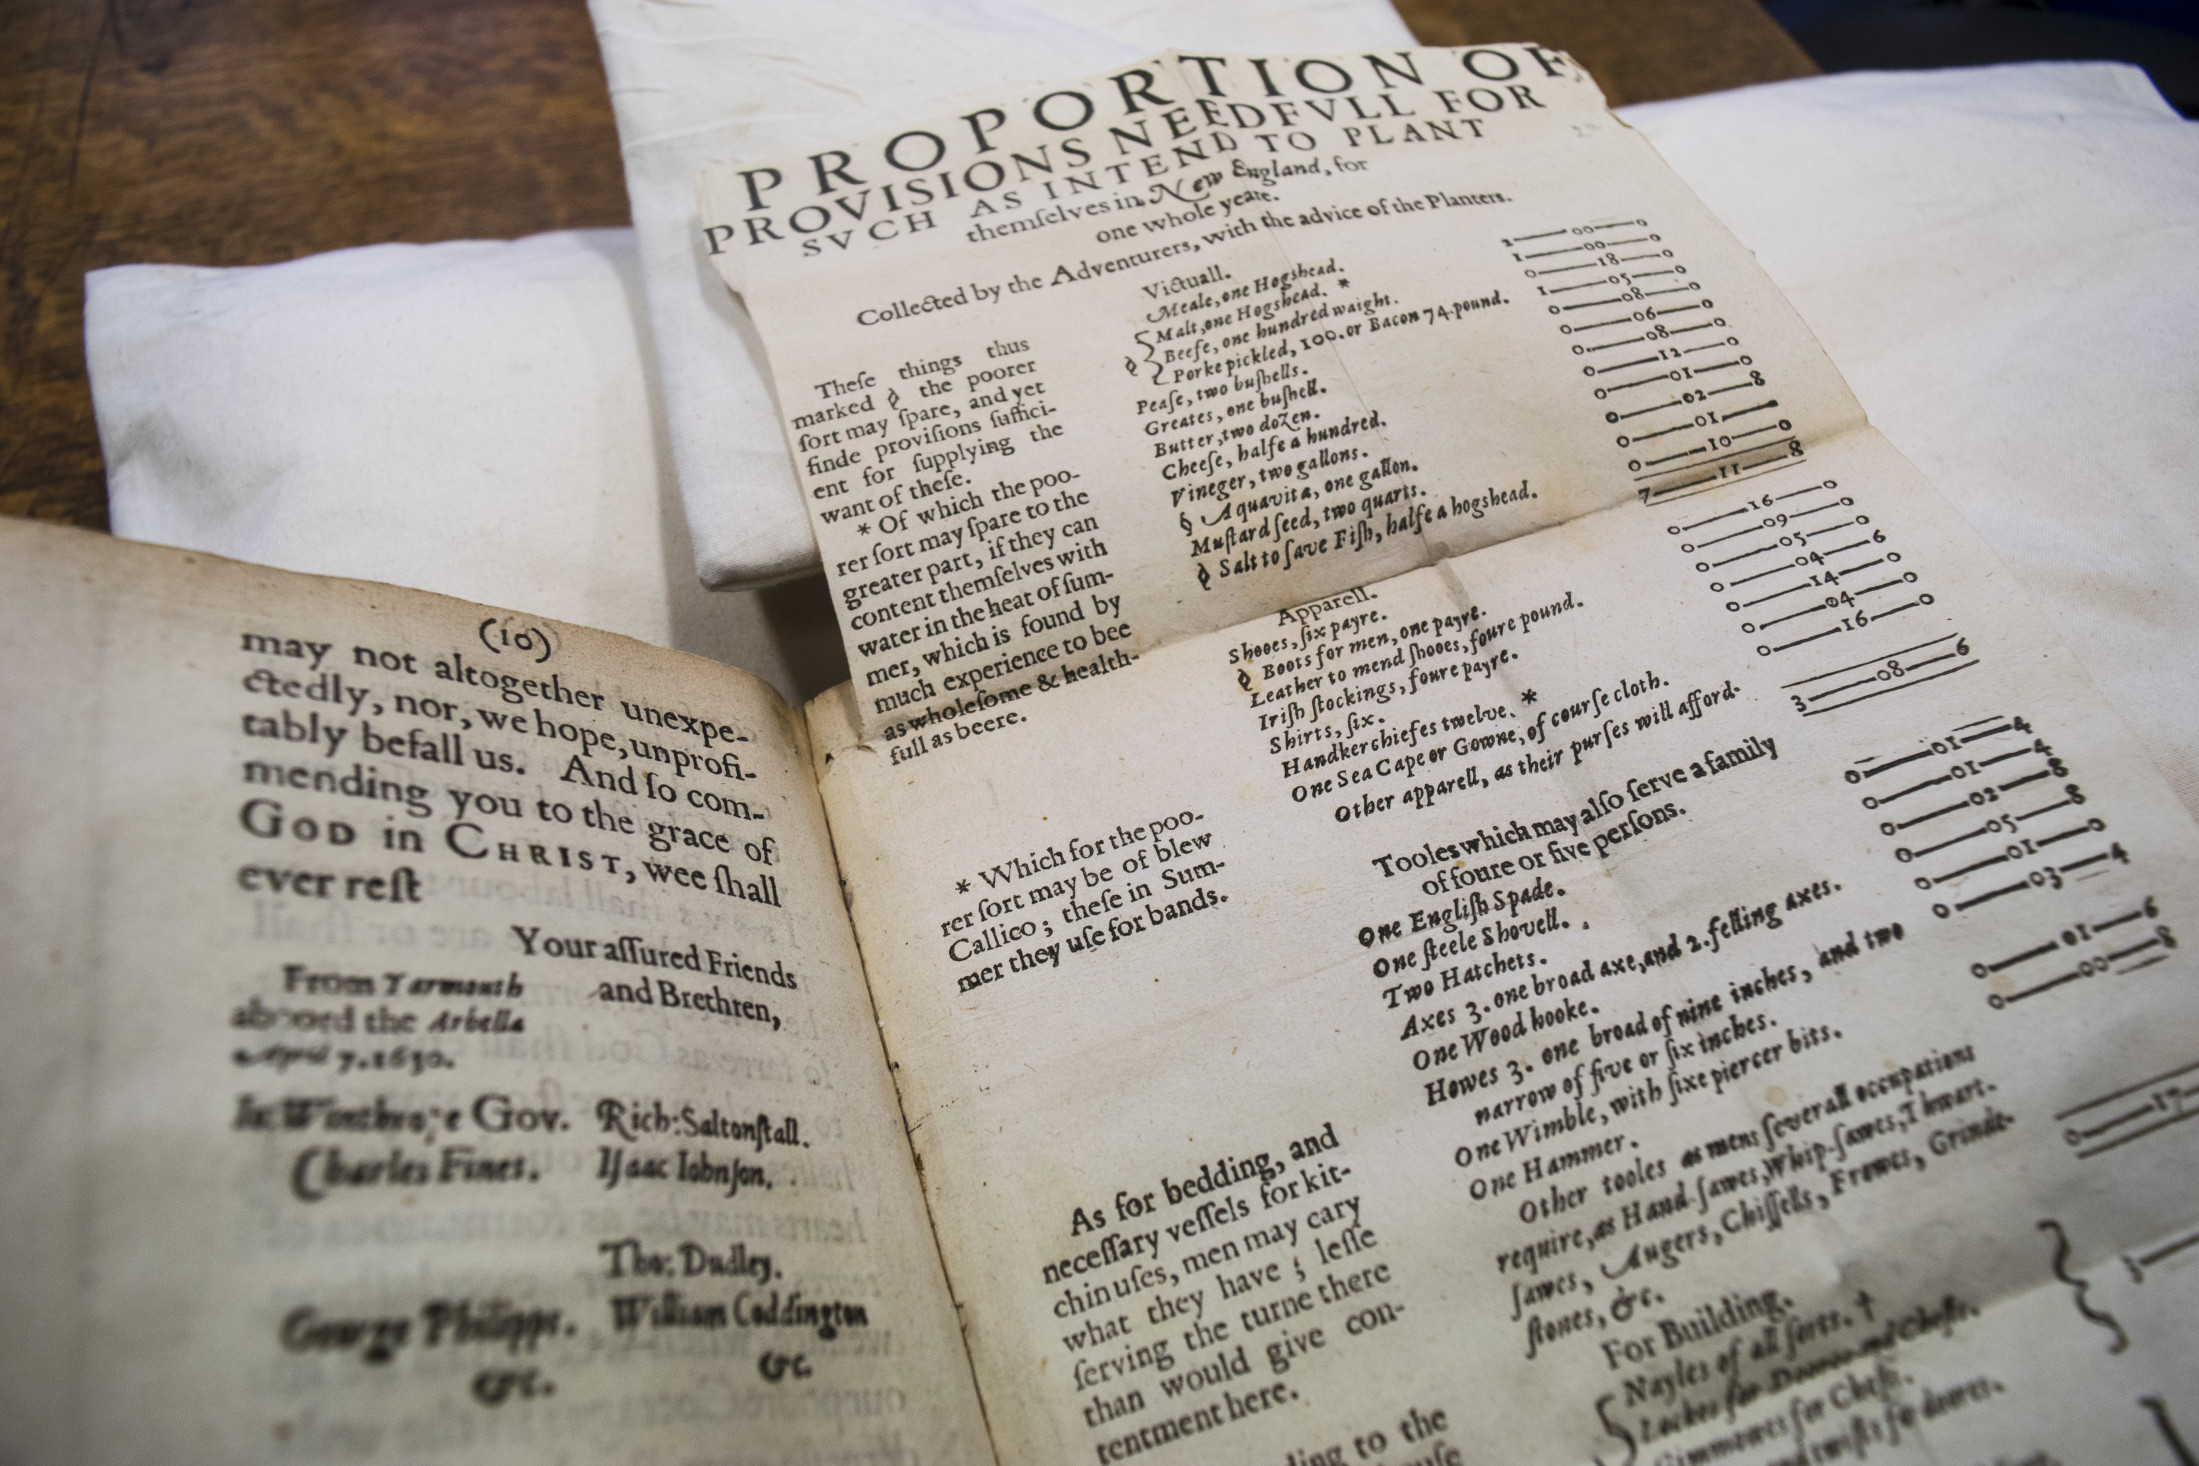 (10)
may not altogether unexpe-
ctedly, nor, we hope, unprofi-
tably befall us. And ſo com-
mending you to the grace of
GOD in CHRIST, wee ſhall
ever reſt
Your aſſured Friends
and Brethren,
From Yarmouth
aboord the Arbella
April 7. 1630.
Io: Winthrope Gov. Rich: Saltonſtall.
Charles Fines. Iſaac Iohnſon.
Tho: Dudley.
George Philipps. William Coddington
&c. &c.
PROPORTION OF
PROVISIONS NEEDFVLL FOR
SVCH AS INTEND TO PLANT
themſelves in New England, for
one whole yeare.
Collected by the Adventurers, with the advice of the Planters.
Theſe things thus
marked ◊ the poorer
ſort may ſpare, and yet
finde proviſions ſuffici-
ent for ſupplying the
want of theſe.
* Of which the poo-
rer ſort may ſpare to the
greater part, if they can
content themſelves with
water in the heat of ſum-
mer, which is found by
much experience to bee
as wholeſome & health-
full as beere.
Victuall.
Meale, one Hogshead. 2—00—0
Malt, one Hogshead. * 1—00—0
Beefe, one hundred waight. 0—18—0
Porke pickled, 100. or Bacon 74. pound. 1—05—0
Peaſe, two buſhells. 0—08—0
Greates, one buſhell. 0—06—0
Butter, two dozen. 0—08—0
Cheeſe, halfe a hundred. 0—12—0
Vineger, two gallons. 0—01—0
◊ Aquavita, one gallon. 0—02—8
Muſtard ſeed, two quarts. 0—01—
◊ Salt to ſave Fiſh, halfe a hogshead. 0—10—0
7—11—8
Apparell.
Shooes, ſix payre. 0—16—0
◊ Boots for men, one payre. 0—09—0
Leather to mend ſhooes, foure pound. 0—05—0
Iriſh ſtockings, foure payre. 0—04—6
Shirts, ſix. 0—14—0
Handkerchiefes twelve. * 0—04—0
One Sea Cape or Gowne, of courſe cloth. 0—16—0
Other apparell, as their purſes will afford.
3—08—6
* Which for the poo-
rer ſort may be of blew
Callico; theſe in Sum-
mer they uſe for bands.
Tooles which may alſo ſerve a family
of foure or five perſons.
One Engliſh Spade. 0—01—4
One ſteele Shovell. 0—01—4
Two Hatchets. 0—02—8
Axes 3. one broad axe, and 2. felling axes. 0—05—8
One Wood hooke. 0—01—0
Howes 3. one broad of nine inches, and two 0—03—4
narrow of five or ſix inches.
One Wimble, with ſixe piercer bits. 0—01—6
One Hammer. 0—00—8
Other tooles as mens ſeverall occupations
require, as Hand-ſawes, Whip-ſawes, Thwart-
ſawes, Augers, Chiſſells, Frowes, Grinde-
ſtones, &c.
0—17—
As for bedding, and
neceſſary veſſels for kit-
chin uſes, men may cary
what they have; leſſe
ſerving the turne there
than would give con-
tentment here.
ding to the
For Building.
Nayles of all ſorts. †
Lockes for Doores and Cheſts.
Gimmowes for Cheſts.
and twiſts for doores.
3—